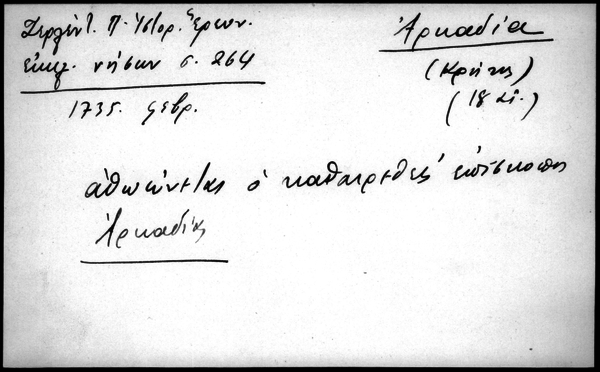 Ζερλέντ. Π. Ἱστορ. Ἔρευν.
ἐκκλ. νήσων σ. 264
1735. φεβρ.
Ἀρκαδία
(Κρήτης)
(18 αἰ.)
ἀθωώνεται ὁ καθαιρεθεὶς ἐπίσκοπος
Ἀρκαδίας